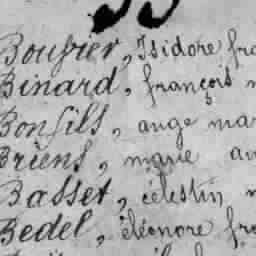 B
Bouvier, Isidore fra
Binard, françois
Bonfils, ange mar
Briens, marie au
Basset, célestin
Bedel, éléonore fra